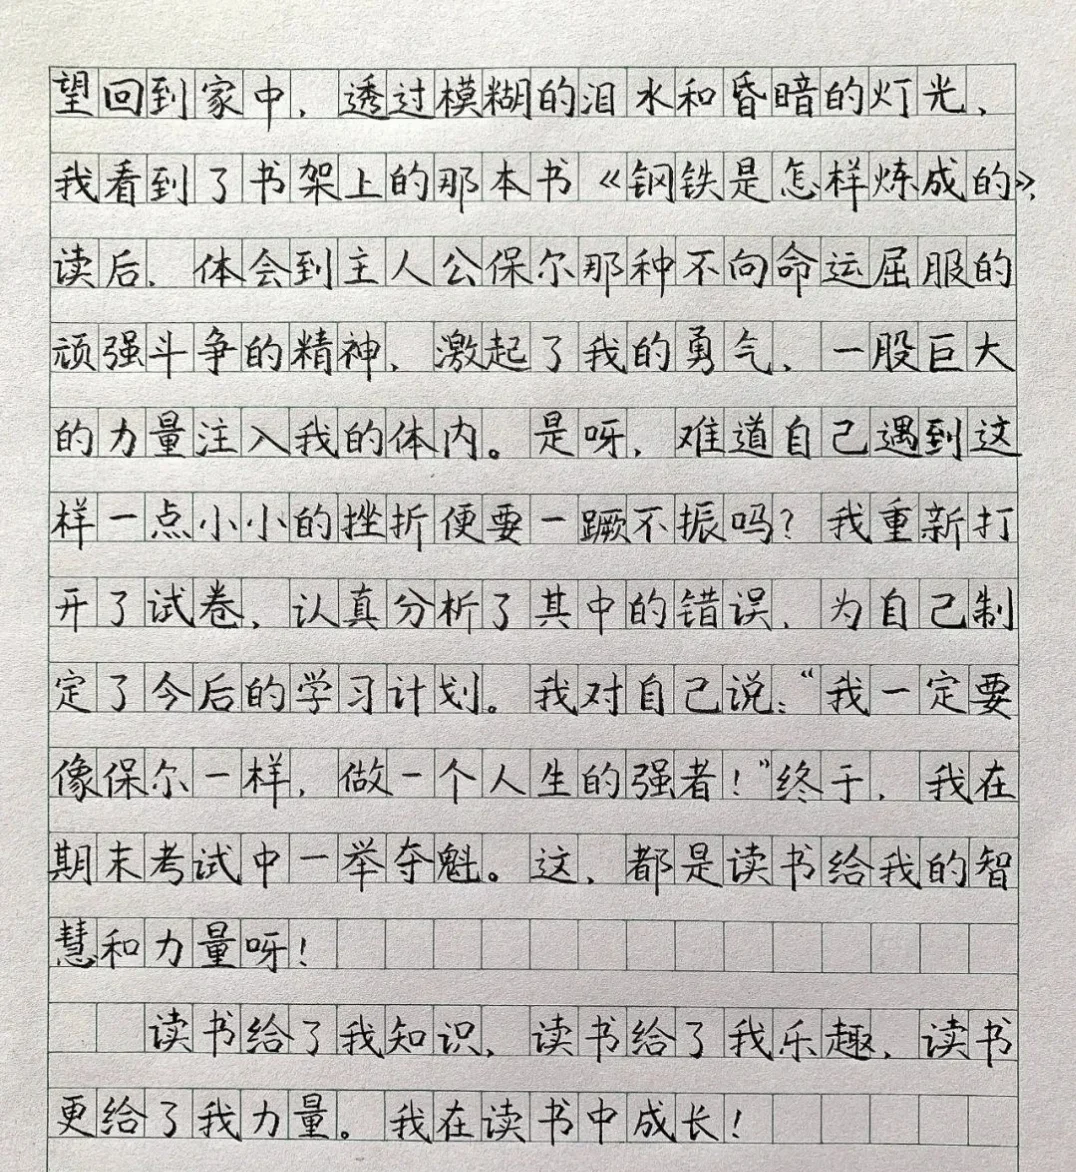 望回到家中，透过模糊的泪水和昏暗的灯光，
我看到了书架上的那本书《钢铁是怎样炼成的》，
读后，体会到主人公保尔那种不向命运屈服的
顽强斗争的精神，激起了我的勇气，一股巨大
的力量注入我的体内。是呀，难道自己遇到这
样一点小小的挫折便要一蹶不振吗？我重新打
开了试卷，认真分析了其中的错误，为自己制
定了今后的学习计划。我对自己说：“我一定要
像保尔一样，做一个人生的强者！”终于，我在
期末考试中一举夺魁。这，都是读书给我的智
慧和力量呀！
读书给了我知识，读书给了我乐趣，读书
更给了我力量。我在读书中成长！